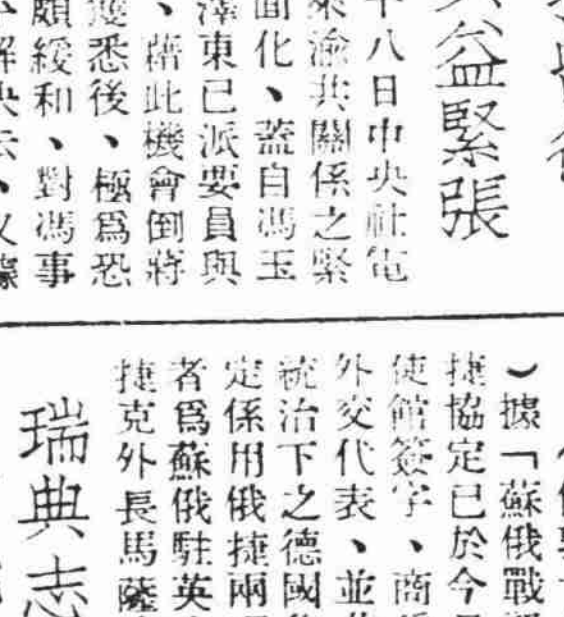 益緊張
十八日中央社電
來渝共關係之緊
面化、蓋自馮玉
澤東已派要員與
、藉此機會倒蔣
悉後、極爲恐
頗緩和、對馮事
）據「蘇俄戰
捷協定已於今
使館簽字、商
外交代表、並
統治下之德國
定係用俄捷兩
者爲蘇俄駐英
捷克外長馬薩
瑞典志